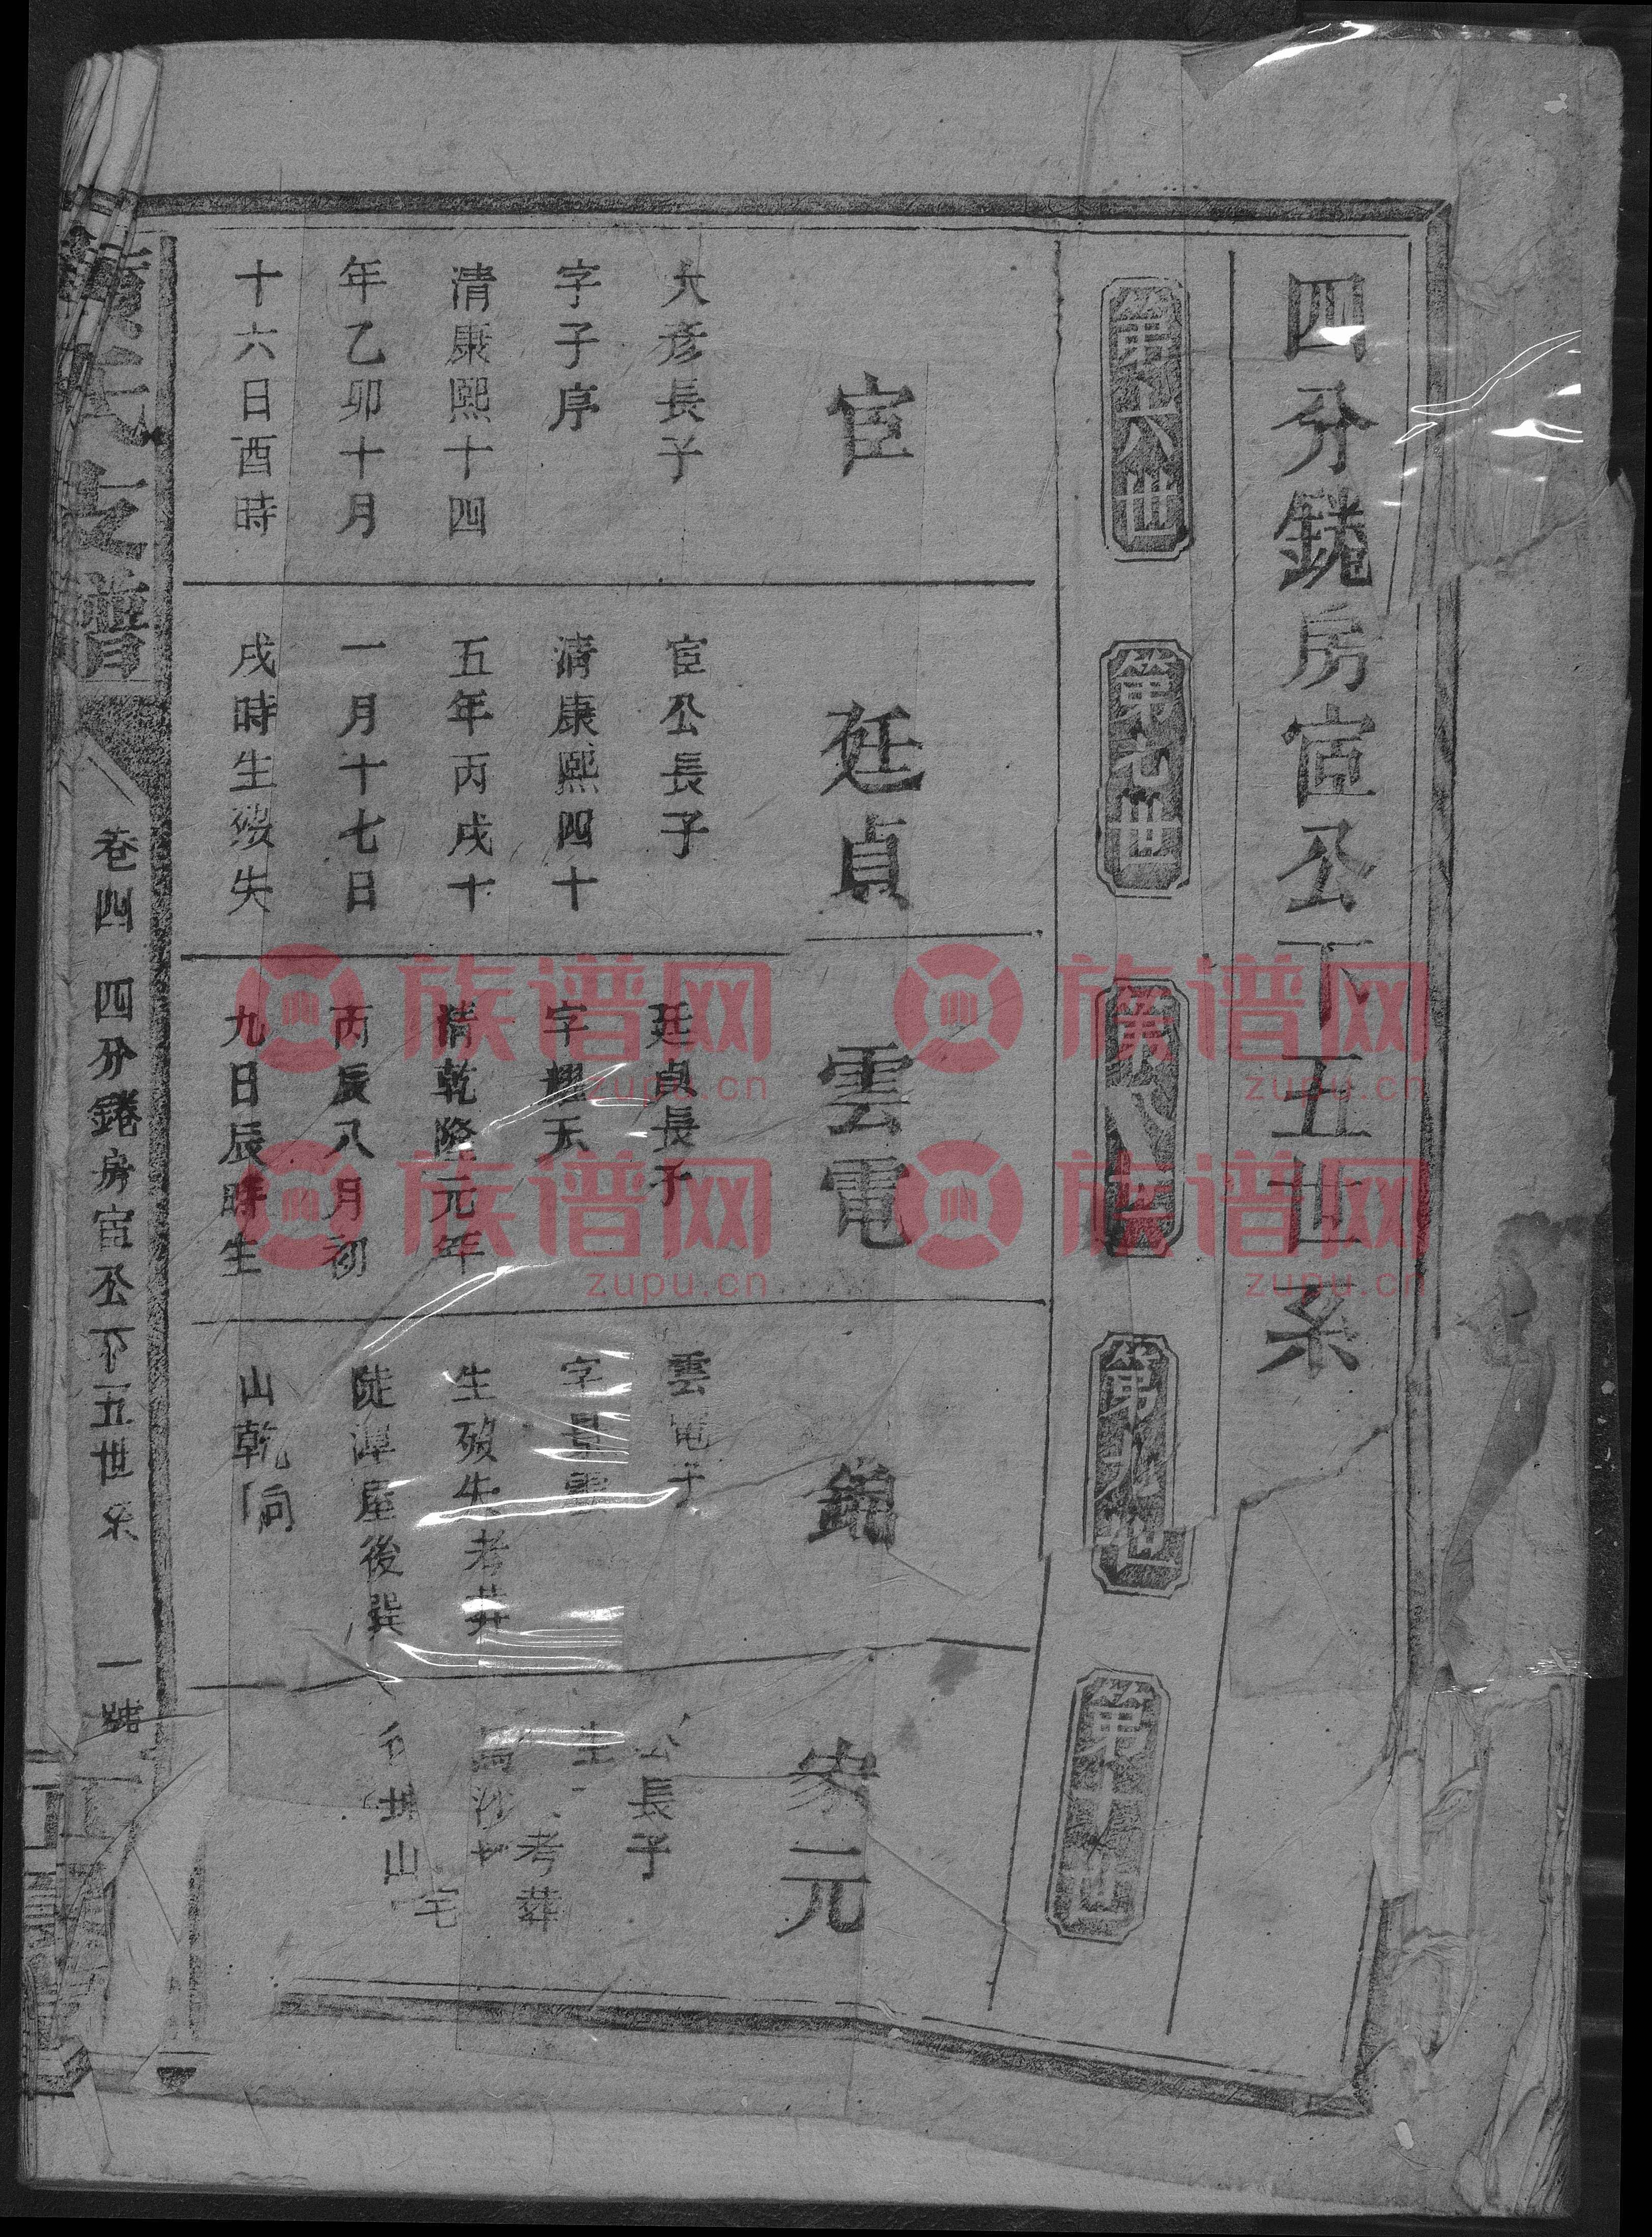 四分𨬟房宦公下五世系
第六世
第七世
第八世
第九世
第十世
宦
大彥長子
字子序
清康熙十四
年乙卯十月
十六日酉時
廷貞
宦公長子
清康熙四十
五年丙戌十
一月十七日
戌時生歿失
雲電
廷貞長子
字耀天
清乾隆元年
丙辰八月初
九日辰時生
雲電子
字
生歿失考葬
陡潭屋後巽
山乾向
元
公長子
生
考葬
山
宅
氏之譜
卷四 四分 房宦公下五世系
一號
族谱网
zupu.cn
族谱网
zupu.cn
族谱网
zupu.cn
族谱网
zupu.cn